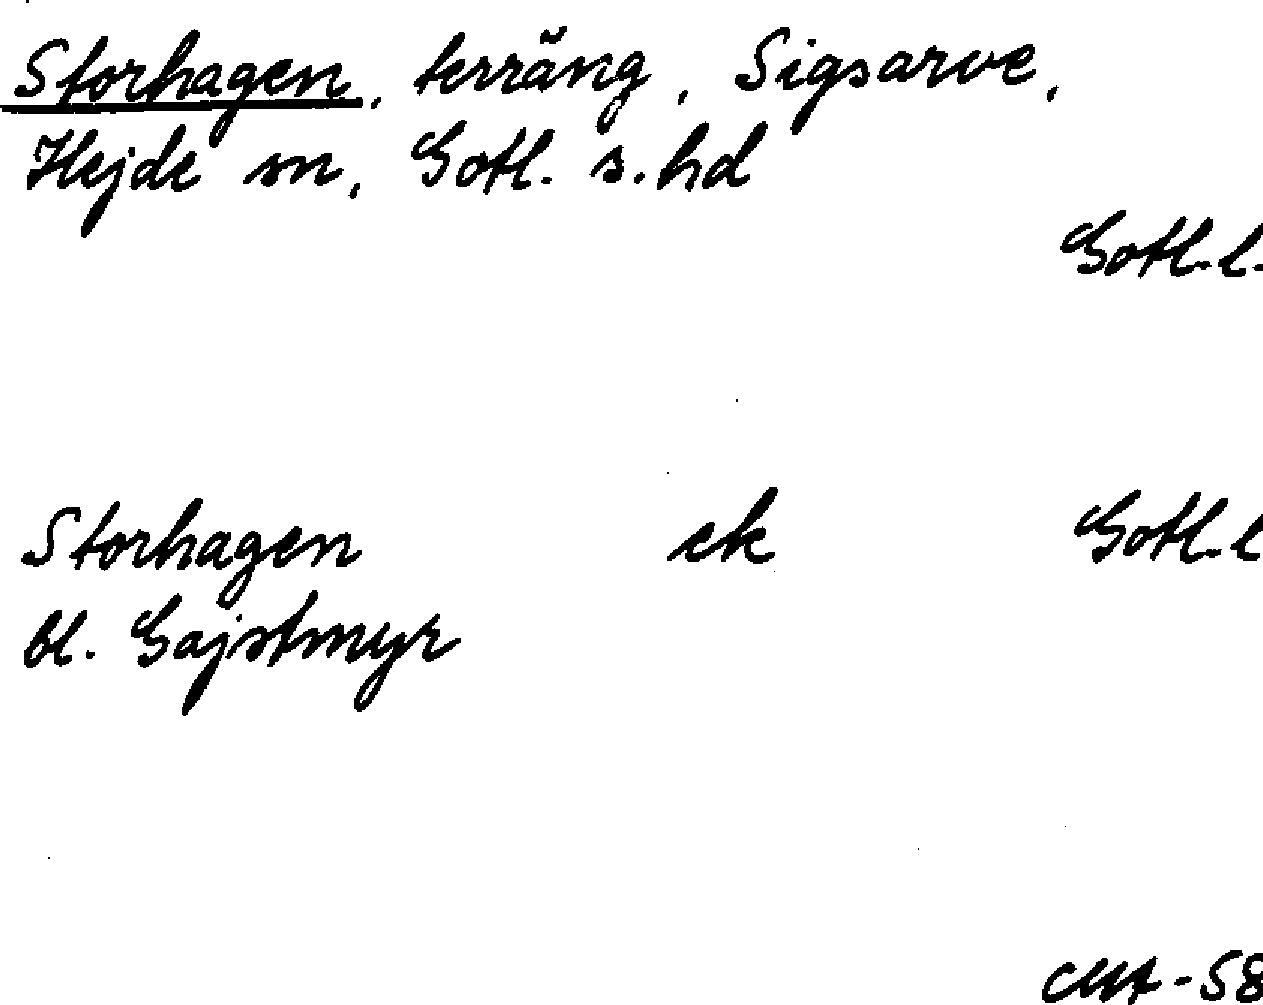 Storhagen, terräng, Sigsarve,
Hejde sn, Gotl. s. hd
Gotl. l.
Storhagen ek Gotl. l
bl. Gajstmyr
-58